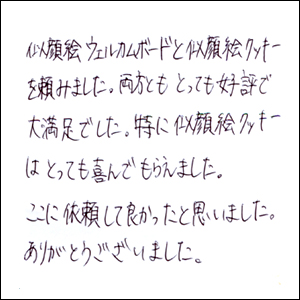 似顔絵ウェルカムボードと似顔絵クッキー
を頼みました。両方とも とっても好評で
大満足でした。特に似顔絵クッキー
は とっても喜んで もらえました。
ここに依頼して良かったと思いました。
ありがとうございました。